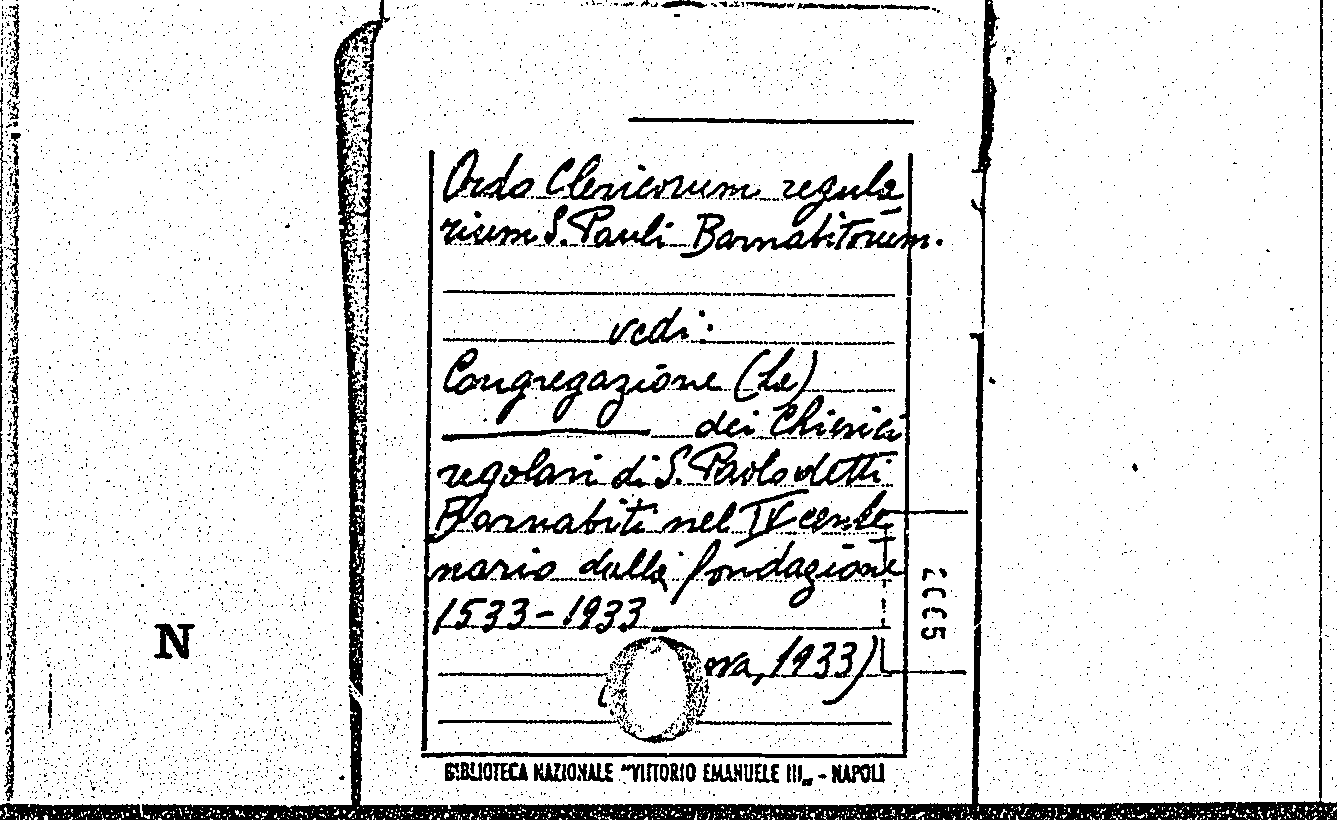 Ordo Clericorum regula
rium S. Pauli Barnabitorum.
vedi:
Congregazione (La)
dei Chierici
regolari di S. Paolo detti
Barnabiti nel IV cente
nario dalla fondazione
1533-1933
va, 1933)
N
BIBLIOTECA NAZIONALE "VITTORIO EMANUELE III„ - NAPOLI